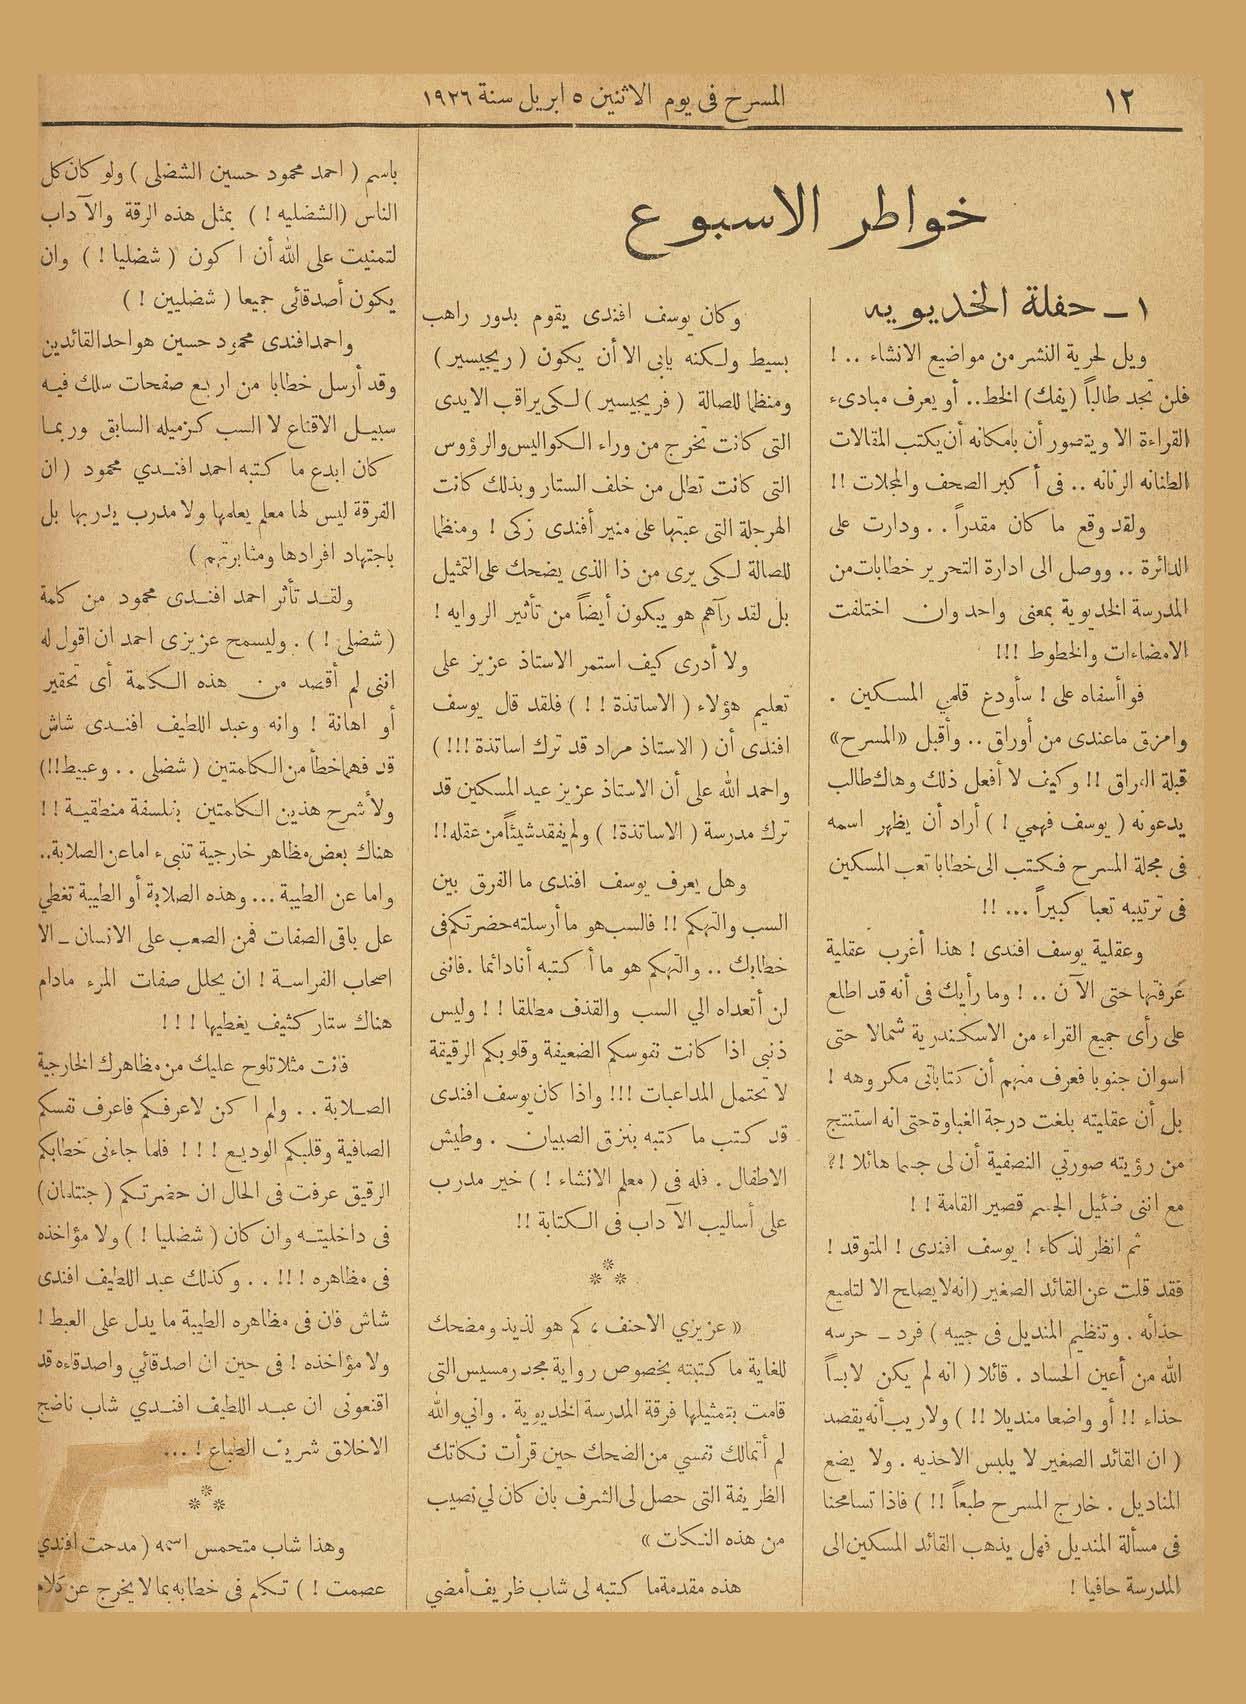 ١٢
المسرح فى يوم الاثنين ٥ ابريل سنة ١٩٢٦
خواطر الاسبوع
١ - حفلة الخديويه
ويل لحرية النشر من مواضيع الانشاء .. !
فلن تجد طالباً (يفك) الخط.. أو يعرف مبادىء
القراءة الا ويتصور أن بامكانه أن يكتب المقالات
الطنانه الرنانه .. فى أكبر الصحف والمجلات !!
ولقد وقع ما كان مقدراً .. ودارت على
الدائرة .. ووصل الى ادارة التحرير خطابات من
المدرسة الخديوية بمعنى واحد وان اختلفت
الامضاءات والخطوط !!!
فواأسفاه على ! سأودع قلمي المسكين .
وامزق ماعندى من أوراق .. وأقبل «المسرح»
قبلة الفراق !! وكيف لا أفعل ذلك وهاك طالب
يدعونه ( يوسف فهمي ! ) أراد أن يظهر اسمه
فى مجلة المسرح فكتب الى خطابا تعب المسكين
فى ترتيبه تعبا كبيراً ... !!
وعقلية يوسف افندى ! هذا أغرب عقلية
عرفتها حتى الآن .. ! وما رأيك فى أنه قد اطلع
على رأى جميع القراء من الاسكندرية شمالا حتى
اسوان جنوبا فعرف منهم أن كتاباتى مكروهه !
بل أن عقليته بلغت درجة الغباوة حتى انه استنتج
من رؤيته صورتي النصفية أن لى جسما هائلا !؟
مع اننى ضئيل الجسم قصير القامة ! !
ثم انظر لذكاء ! يوسف افندى ! المتوقد !
فقد قلت عن القائد الصغير (انه لا يصلح الا لتلميع
حذائه . وتنظيم المنديل فى جيبه ) فرد – حرسه
الله من أعين الحساد . قائلا ( انه لم يكن لابساً
حذاء !! أو واضعا منديلا !! ) ولا ريب أنه يقصد
( ان القائد الصغير لا يلبس الاحذيه . ولا يضع
المناديل . خارج المسرح طبعاً !! ) فاذا تسامحنا
فى مسألة المنديل فهل يذهب القائد المسكين الى
المدرسة حافيا !
وكان يوسف افندى يقوم بدور راهب
بسيط ولكنه يابى الا أن يكون ( ريجيسير )
ومنظما للصالة ( فريجيسير ) لكى يراقب الايدى
التى كانت تخرج من وراء الكواليس والرؤوس
التى كانت تطل من خلف الستار وبذلك كانت
الهرجلة التى عبتها على منير أفندى زكى ! ومنظما
للصالة لكى يرى من ذا الذى يضحك على التمثيل
بل لقد رآهم هو يبكون أيضاً من تأثير الروايه !
ولا أدرى كيف استمر الاستاذ عزيز على
تعليم هؤلاء ( الاساتذة ! ! ) فلقد قال يوسف
افندى أن ( الاستاذ مراد قد ترك اساتذة !!! )
واحمد الله على أن الاستاذ عزيز عيد المسكين قد
ترك مدرسة ( الاساتذة! ) ولم يفقد شيئاً من عقله !!
وهل يعرف يوسف افندى ما الفرق بين
السب والتهكم !! فالسب هو ما أرسلته حضرتكم فى
خطابك .. والتهكم هو ما أكتبه أنا دائما . فاننى
لن أتعداه الي السب والقذف مطلقا ! ! وليس
ذنبى اذا كانت نفوسكم الضعيفة وقلوبكم الرقيقة
لا تحتمل المداعبات !!! واذا كان يوسف افندى
قد كتب ما كتبه بنزق الصبيان . وطيش
الاطفال . فله فى ( معلم الانشاء ! ) خير مدرب
على أساليب الآداب فى الكتابة !!
« عزيزي الاحنف ، كم هو لذيذ ومضحك
للغاية ما كتبته بخصوص رواية مجد رمسيس التى
قامت بتمثيلها فرقة المدرسة الخديوية . واني والله
لم أتمالك نفسي من الضحك حين قرأت نكاتك
الظريفة التى حصل لى الشرف بان كان لي نصيب
من هذه النكات »
هذه مقدمة ما كتبه لى شاب ظريف أمضي
باسم ( احمد محمود حسين الشضلى ) ولو كان كل
الناس (الشضليه ! ) بمثل هذه الرقة والآداب
لتمنيت على الله أن اكون ( شضليا ! ) وان
يكون أصدقائى جميعا ( شضليين ! )
واحمد افندى محمود حسين هو احد القائدين
وقد أرسل خطابا من اربع صفحات سلك فيه
سبيل الاقناع لا السب كزميله السابق وربما
كان ابدع ما كتبه احمد افندي محمود ( ان
الفرقة ليس لها معلم يعلمها ولا مدرب يدربها بل
باجتهاد افرادها ومثابرتهم )
ولقد تأثر احمد افندى محمود من كلمة
( شضلى ! ) . وليسمح عزيزى احمد ان اقول له
اننى لم أقصد من هذه الكلمة أى تحقير
أو اهانة ! وانه وعبد اللطيف افندى شاش
قد فهما خطأ من الكلمتين ( شضلى .. وعبيط!!)
ولأشرح هذين الكلمتين بفلسفة منطقية ! !
هناك بعض مظاهر خارجية تنبىء اما عن الصلابة..
واما عن الطيبة ... وهذه الصلابة أو الطيبة تغطي
على باقى الصفات فمن الصعب على الانسان – الا
اصحاب الفراسة ! ان يحلل صفات المرء مادام
هناك ستار كثيف يغطيها ! ! !
فانت مثلا تلوح عليك من مظاهرك الخارجية
الصلابة .. ولم اكن لاعرفكم فاعرف نفسكم
الصافية وقلبكم الوديع ! ! ! فلما جاءنى خطابكم
الرقيق عرفت فى الحال ان حضرتكم ( جنتلمان)
فى داخليته وان كان ( شضليا ! ) ولا مؤاخذه
فى مظاهره !!! .. وكذلك عبد اللطيف افندى
شاش فان فى مظاهره الطيبة ما يدل على العبط !
ولا مؤاخذه ! فى حين ان اصدقائي واصدقاءه قد
اقنعونى ان عبد اللطيف افندي شاب ناضج
الاخلاق شريف الطباع ! ...
وهذا شاب متحمس اسمه ( مدحت افندي
عصمت ! ) تكلم فى خطابه بما لا يخرج عن كلام